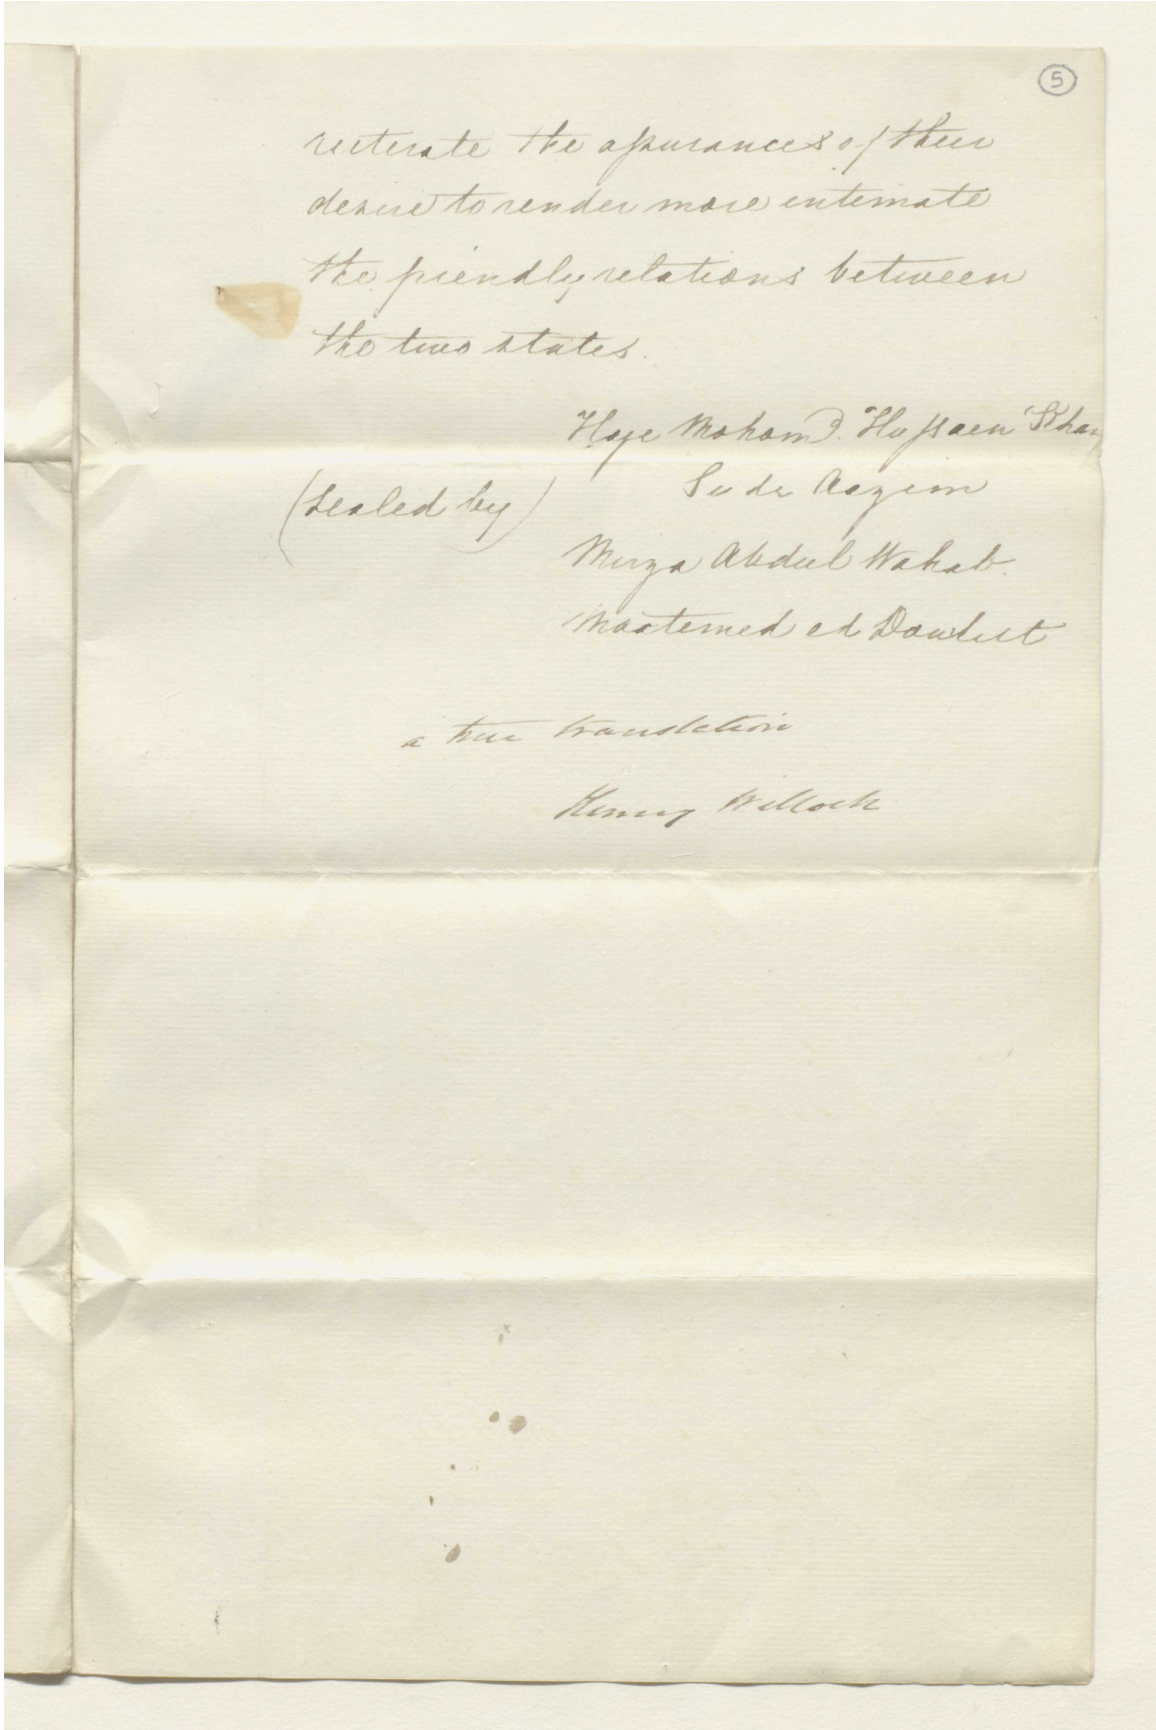 5
reiterate the assurances of their
desire to render more intimate
the friendly relations between
the two states.
Haje Mohamd. Hussaen Khan
(Sealed by)
Sudr Aazim
Mirza Abdul Wahab.
Moatemed ed Dowlut
a true translation
Henry Willock